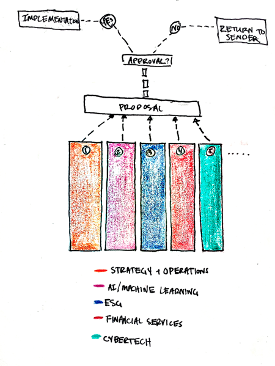 IMPLEMENTATION
YES
NO
RETURN TO
SENDER
APPROVAL?
PROPOSAL
1 2 3 4 5
.....
STRATEGY + OPERATIONS
AI/MACHINE LEARNING
ESG
FINANCIAL SERVICES
CYBERTECH